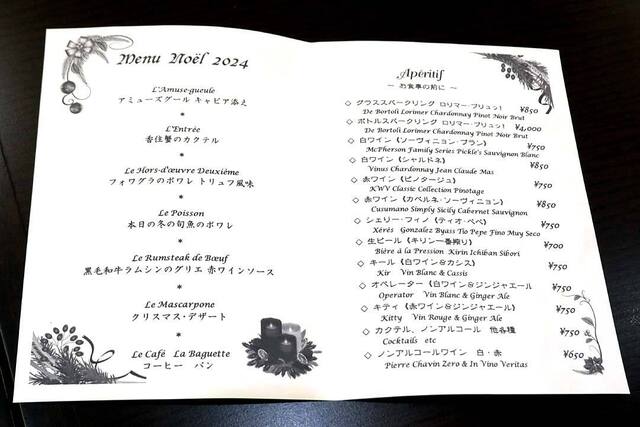 Menu Noël 2024
L'Amuse-gueule
アミューズグール キャビア添え
*
L'Entrée
香住蟹のカクテル
*
Le Hors-d'œuvre Deuxième
フォワグラのポワレ トリュフ風味
*
Le Poisson
本日の冬の旬魚のポワレ
*
Le Rumsteak de Bœuf
黒毛和牛ラムシンのグリエ 赤ワインソース
*
Le Mascarpone
クリスマス・デザート
*
Le Café La Baguette
コーヒー パン
Apéritif
～ お食事の前に ～
◇ グラススパークリング ロリマー・ブリュット ¥850
De Bortoli Lorimer Chardonnay Pinot Noir Brut
◇ ボトルスパークリング ロリマー・ブリュット ¥4,000
De Bortoli Lorimer Chardonnay Pinot Noir Brut
◇ 白ワイン (ソーヴィニョン・ブラン) ¥750
McPherson Family Series Pickle's Sauvignon Blanc
◇ 白ワイン (シャルドネ) ¥850
Vinus Chardonnay Jean Claude Mas
◇ 赤ワイン (ピノタージュ) ¥750
KWV Classic Collection Pinotage
◇ 赤ワイン (カベルネ・ソーヴィニョン) ¥850
Cusumano Simply Sicily Cabernet Sauvignon
◇ シェリー・フィノ (ティオ・ペペ) ¥750
Xérès Gonzalez Byass Tio Pepe Fino Muy Seco
◇ 生ビール (キリン一番搾り) ¥700
Bière à la Pression Kirin Ichiban Sibori
◇ キール (白ワイン&カシス) ¥750
Kir Vin Blanc & Cassis
◇ オペレーター (白ワイン&ジンジャエール) ¥750
Operator Vin Blanc & Ginger Ale
◇ キティ (赤ワイン&ジンジャエール) ¥750
Kitty Vin Rouge & Ginger Ale
◇ カクテル、ノンアルコール 他各種 ¥750
Cocktails etc
◇ ノンアルコールワイン 白・赤 ¥650
Pierre Chavin Zero & In Vino Veritas